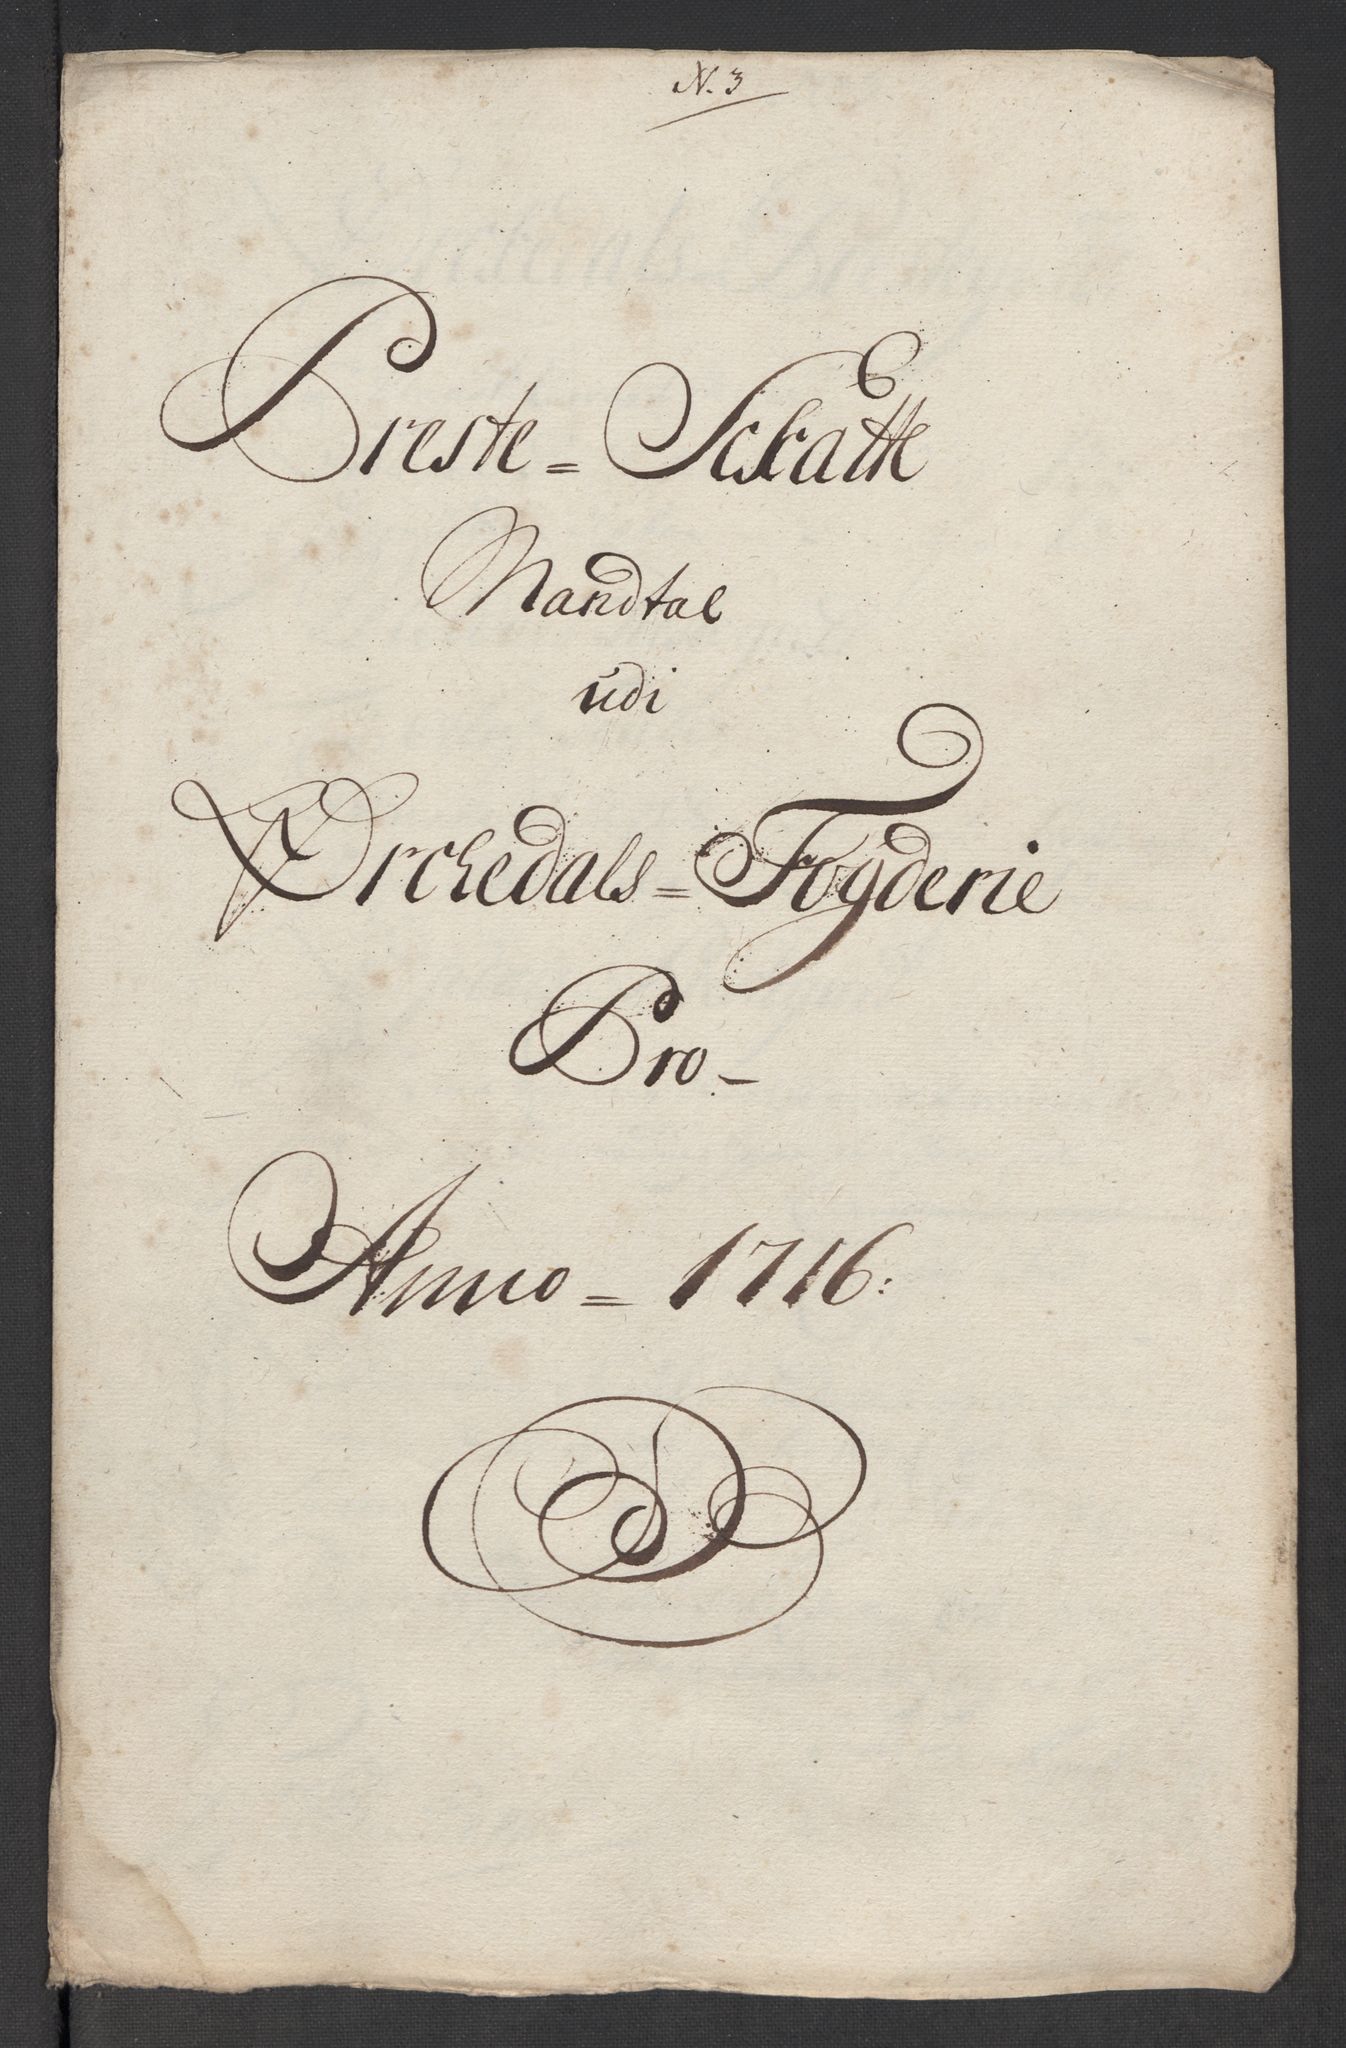 N. 3
Preste = Schatte
Mandtal
udi
Orchedals = Fogderie
Pro -
Anno = 1716: